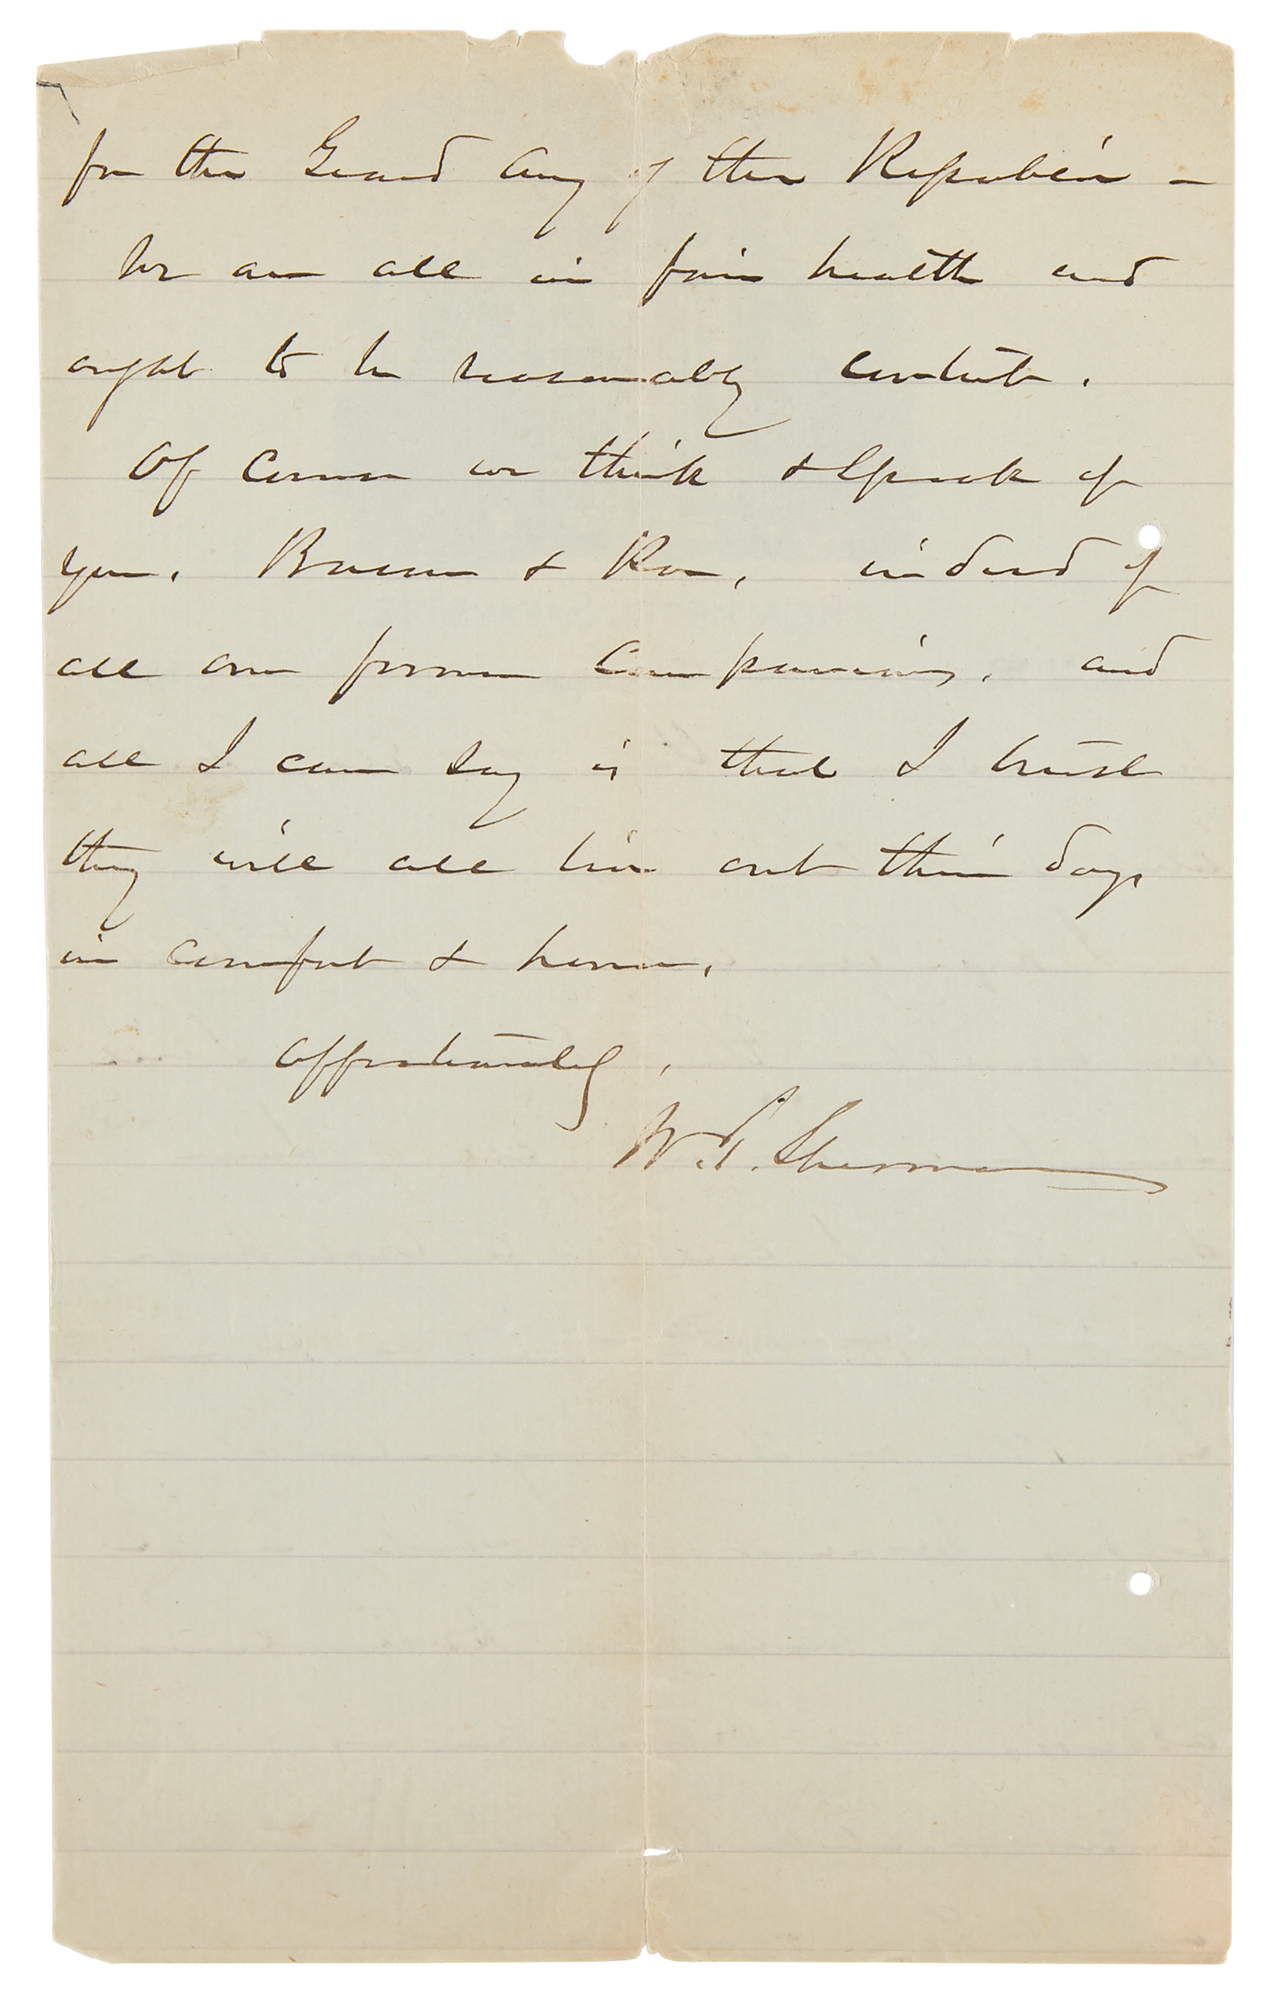 for the Grand Army of the Republic —
We are all in fair health and
ought to be reasonably content.
Of course we think & speak of
you, Bacon & Poe, indeed of
all our former companions, and
all I can say is that I trust
they will all live out their days
in comfort & honor.
Affectionately,
W. T. Sherman